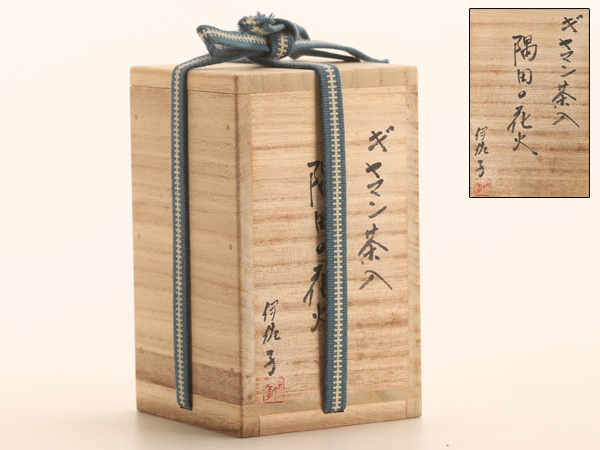 ギヤマン茶入
隅田の花火
伊佐子
ギヤマン茶入
隅田の花火
伊佐子